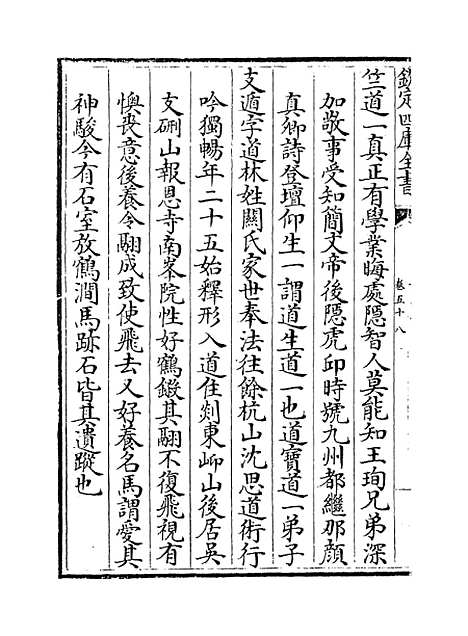 欽定四庫全書
卷五十八
竺道一真正有學業晦處隱智人莫能知王珣兄弟深
加敬事受知簡文帝後隱虎邱時號九州都維那顔
真卿詩登壇仰生一謂道生道一也道寳道一弟子
支遁字道林姓關氏家世奉法往餘杭山沈思道術行
吟獨暢年二十五始釋形入道住剡東岬山後居吳
支硎山報恩寺南峯院性好鶴鎩其翮不復飛視有
懊喪意後養令翮成致使飛去又好養名馬謂愛其
神駿今有石室放鶴澗馬跡石皆其遺蹤也